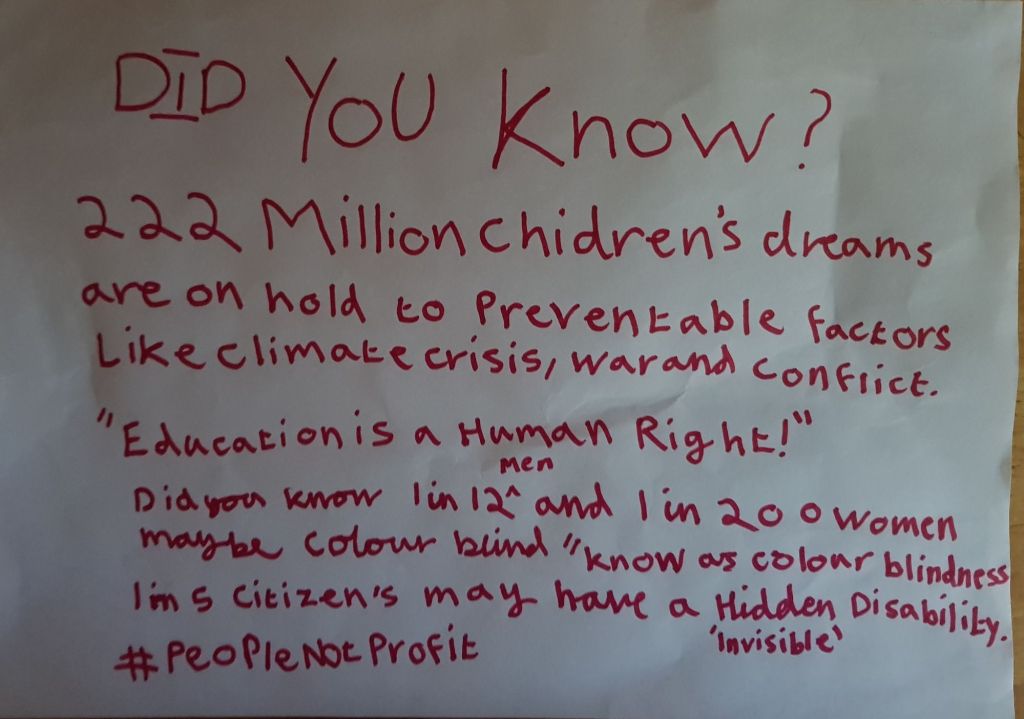 DID YOU Know?
222 Million Chidren's dreams
are on hold to Preventable factors
Like climate crisis, war and conflict.
"Education is a Human Right!"
men
Did you know 1 in 12^ and 1 in 200 women
maybe colour blind "know as colour blindness
1 in 5 Citizen's may have a Hidden Disability.
'invisible'
#PeoPleNotProfit